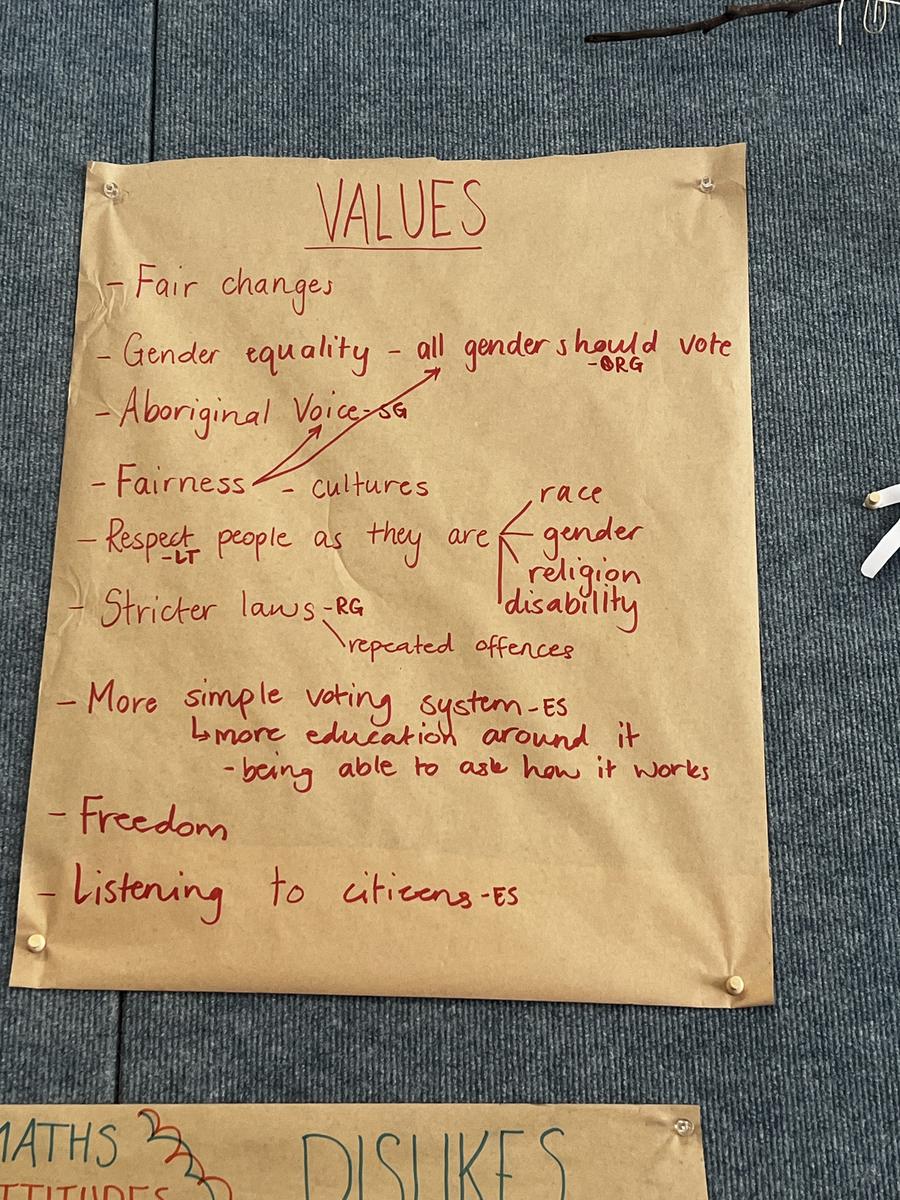 VALUES
- Fair changes
- Gender equality - all gender should vote
-RG
- Aboriginal Voice-SG
- Fairness - cultures
race
- Respect people as they are gender
-LT
religion
disability
- Stricter laws-RG
repeated offences
- More simple voting system-ES
more education around it
-being able to ask how it works
- Freedom
- Listening to citizens-ES
MATHS
DISLIKES
TTITUDES